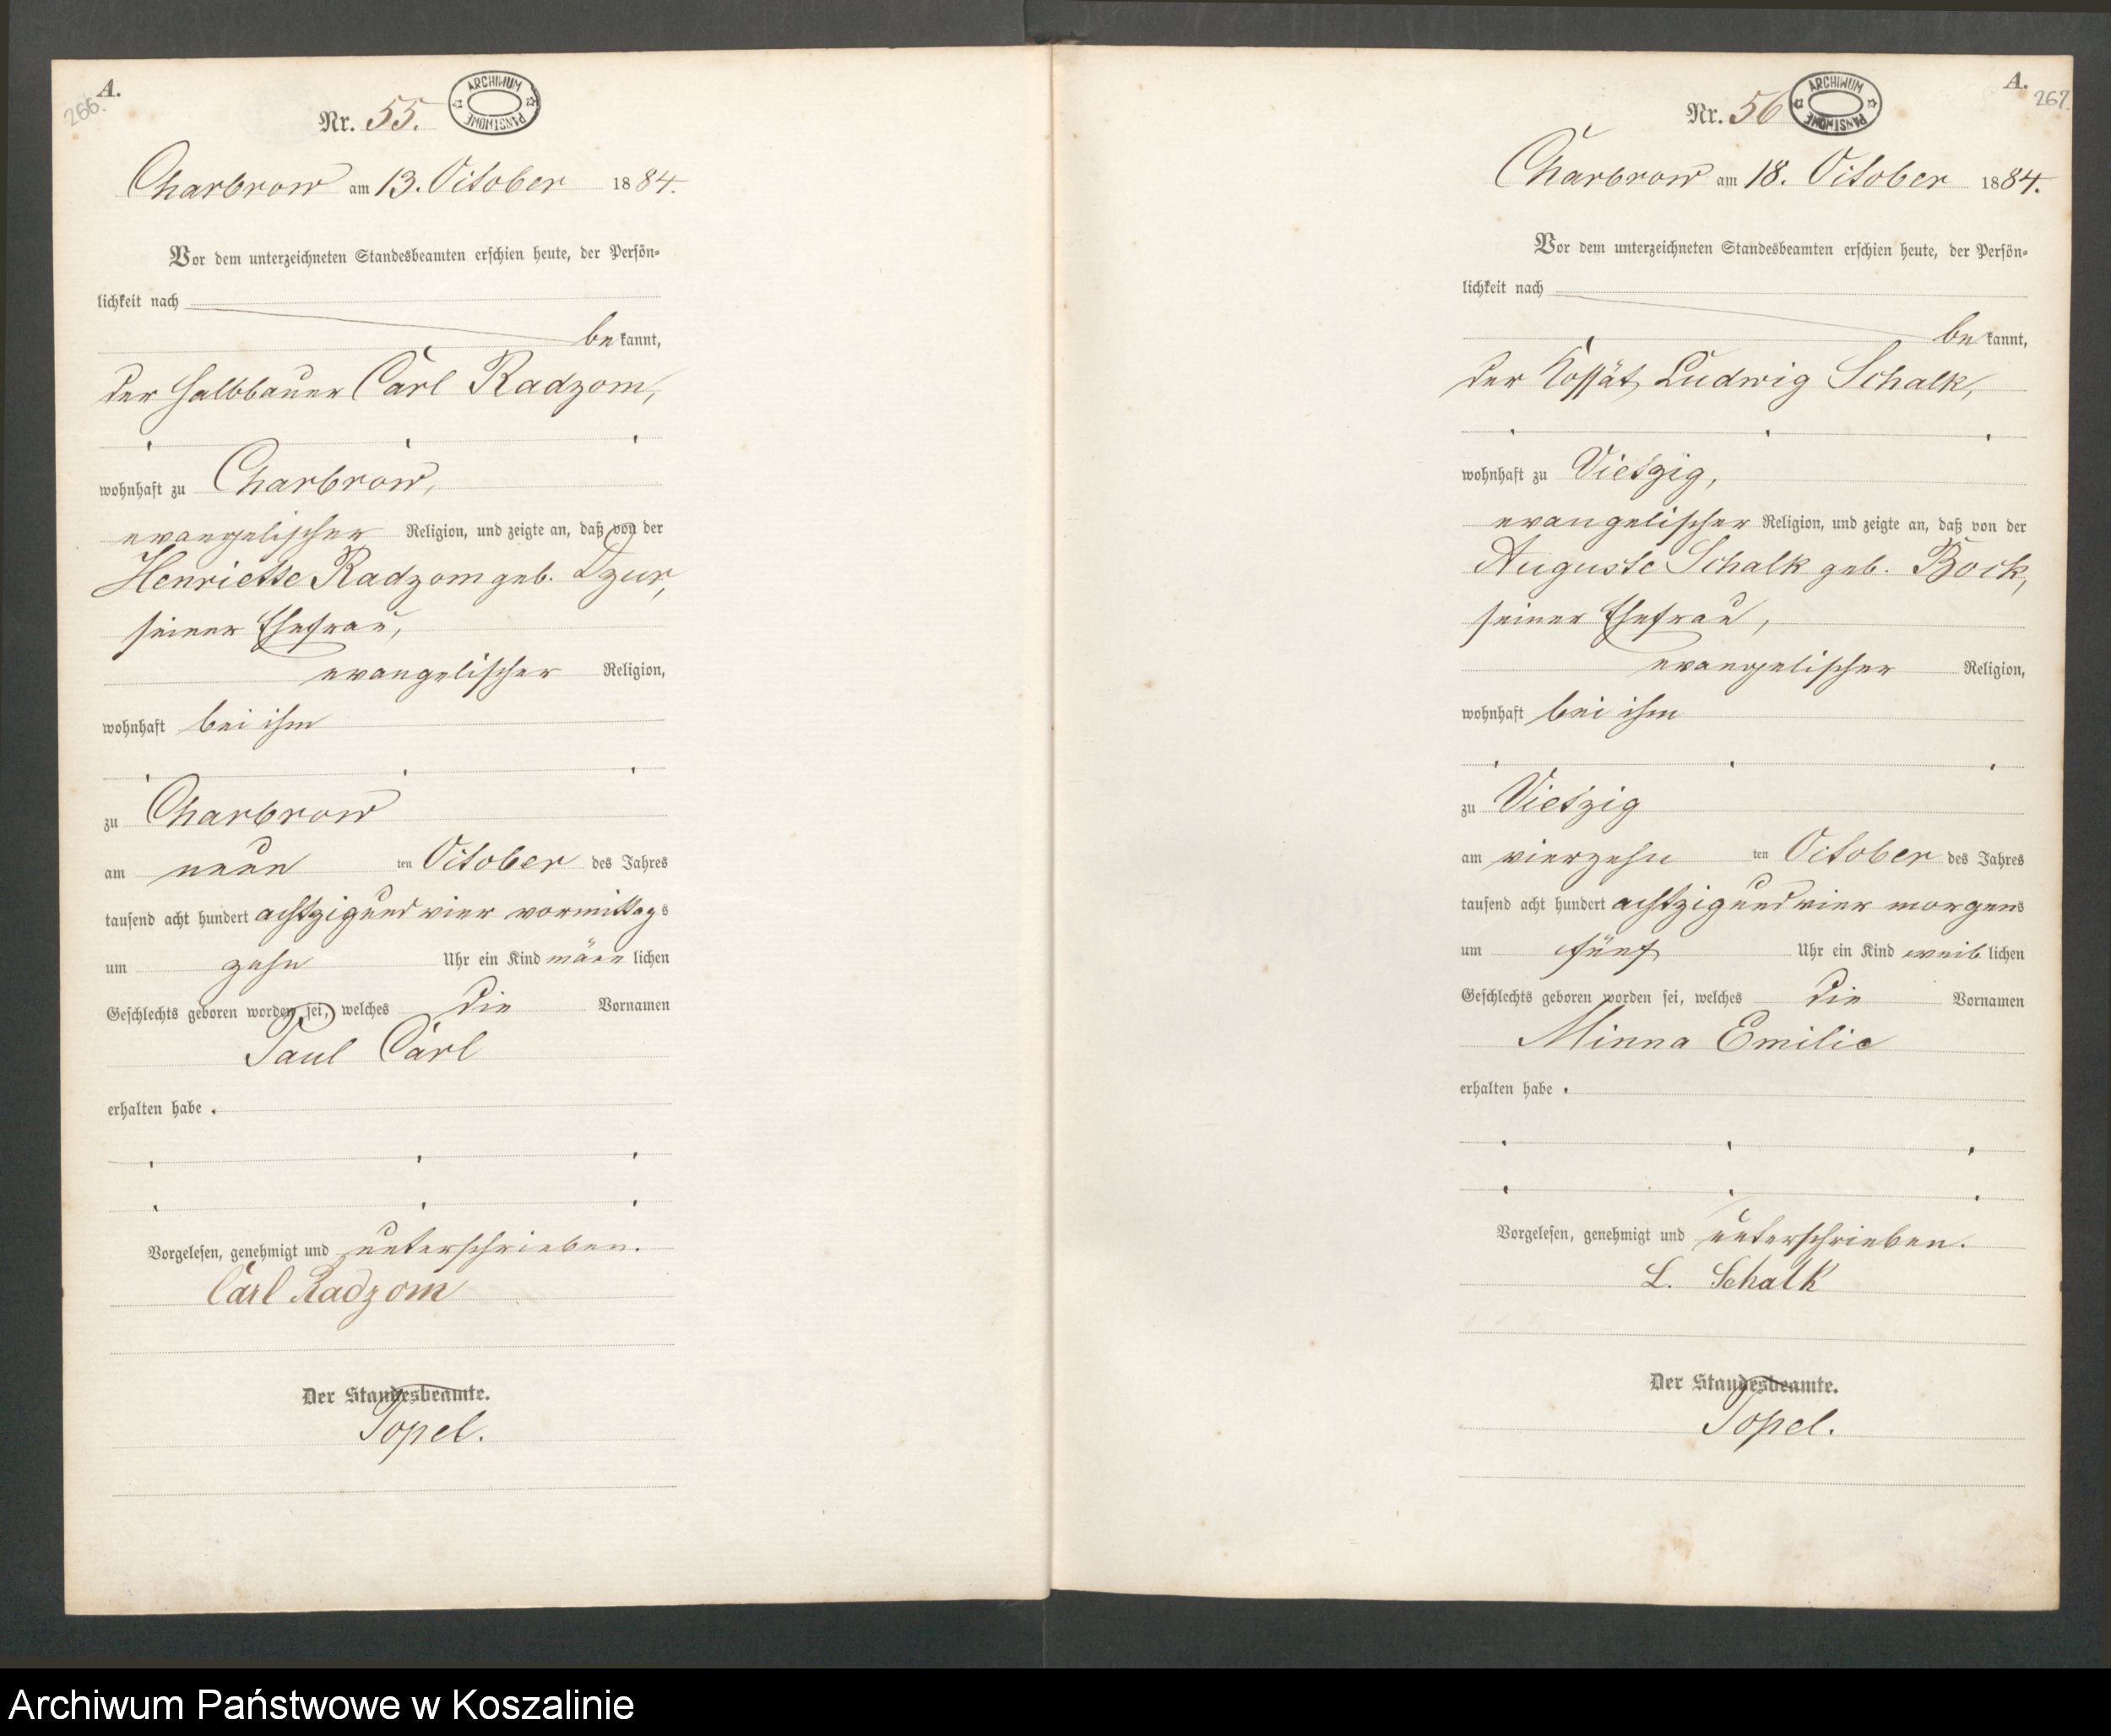 A.
266.
Nr. 55.
ARCHIWUM PAŃSTWOWE
Charbrow am 13. October 1884.
Vor dem unterzeichneten Standesbeamten erschien heute, der Persön-
lichkeit nach
bekannt,
der Halbbauer Carl Radzom,
wohnhaft zu Charbrow,
evangelischer Religion, und zeigte an, daß von der
Henriette Radzom geb. Dzur,
seiner Ehefrau,
evangelischer Religion,
wohnhaft bei ihm
zu Charbrow
am neun ten October des Jahres
tausend acht hundert achtzig und vier vormittags
um zehn Uhr ein Kind männlichen
Geschlechts geboren worden sei, welches die Vornamen
Paul Carl
erhalten habe.
Vorgelesen, genehmigt und unterschrieben.
Carl Radzom
Der Standesbeamte.
Topel.
A.
267.
Nr. 56
ARCHIWUM PAŃSTWOWE
Charbrow am 18. October 1884.
Vor dem unterzeichneten Standesbeamten erschien heute, der Persön-
lichkeit nach
bekannt,
der Kossät Ludwig Schalk,
wohnhaft zu Vietzig,
evangelischer Religion, und zeigte an, daß von der
Auguste Schalk geb. Bock,
seiner Ehefrau,
evangelischer Religion,
wohnhaft bei ihm
zu Vietzig
am vierzehn ten October des Jahres
tausend acht hundert achtzig und vier morgens
um fünf Uhr ein Kind weiblichen
Geschlechts geboren worden sei, welches die Vornamen
Minna Emilie
erhalten habe.
Vorgelesen, genehmigt und unterschrieben.
L. Schalk
Der Standesbeamte.
Topel.
Archiwum Państwowe w Koszalinie